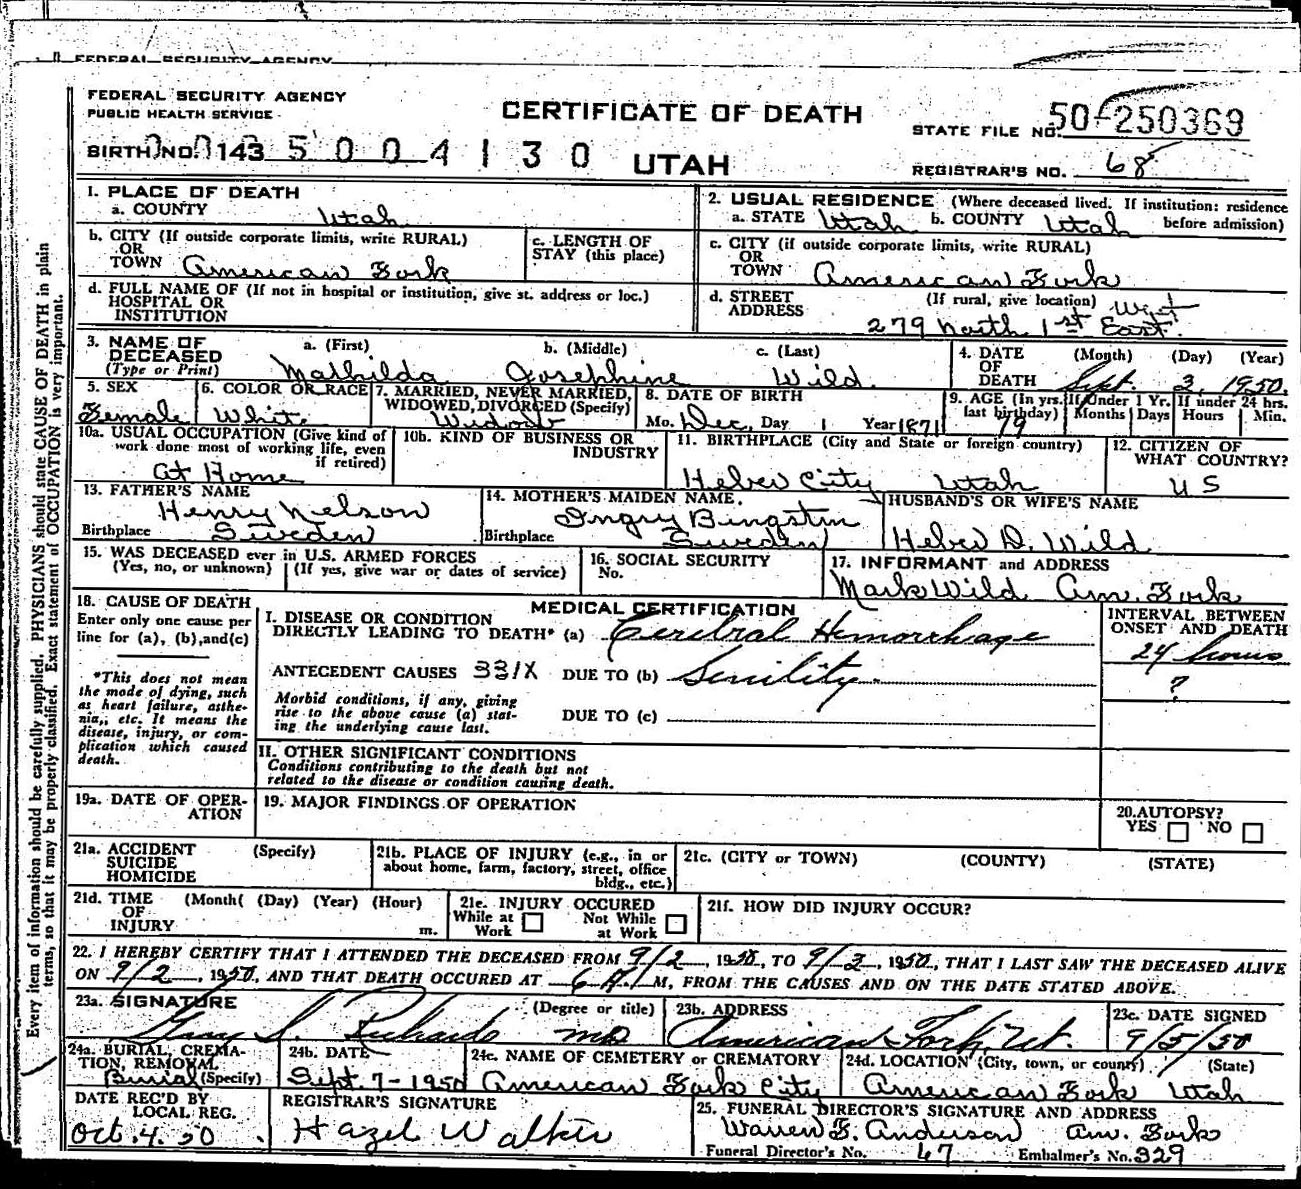 FEDERAL SECURITY AGENCY
FEDERAL SECURITY AGENCY
PUBLIC HEALTH SERVICE
CERTIFICATE OF DEATH
STATE FILE NO. 50-250369
BIRTH NO. 143 5 0 0 4 1 3 0
UTAH
REGISTRAR'S NO. 68
1. PLACE OF DEATH
a. COUNTY Utah
2. USUAL RESIDENCE (Where deceased lived. If institution: residence before admission)
a. STATE Utah b. COUNTY Utah
b. CITY (If outside corporate limits, write RURAL)
OR
TOWN American Fork
c. LENGTH OF
STAY (this place)
c. CITY (if outside corporate limits, write RURAL)
OR
TOWN American Fork
d. FULL NAME OF (If not in hospital or institution, give st. address or loc.)
HOSPITAL OR
INSTITUTION
d. STREET (If rural, give location)
ADDRESS
West
279 North 1st East
3. NAME OF
DECEASED
(Type or Print)
a. (First) b. (Middle) c. (Last)
Mathilda Josephine Wild
4. DATE (Month) (Day) (Year)
OF
DEATH Sept. 3, 1950.
5. SEX
Female
6. COLOR OR RACE
White
7. MARRIED, NEVER MARRIED,
WIDOWED, DIVORCED (Specify)
Widow
8. DATE OF BIRTH
Mo. Dec. Day 1 Year 1871
9. AGE (In yrs. last birthday)
79
If Under 1 Yr.
Months Days
If under 24 hrs.
Hours Min.
10a. USUAL OCCUPATION (Give kind of
work done most of working life, even
if retired)
At Home
10b. KIND OF BUSINESS OR
INDUSTRY
11. BIRTHPLACE (City and State or foreign country)
Heber City Utah
12. CITIZEN OF
WHAT COUNTRY?
U S
13. FATHER'S NAME
Henry Nelson
Birthplace Sweden
14. MOTHER'S MAIDEN NAME.
Ingry Bingstin
Birthplace Sweden
HUSBAND'S OR WIFE'S NAME
Heber D. Wild
15. WAS DECEASED ever in U.S. ARMED FORCES
(Yes, no, or unknown) (If yes, give war or dates of service)
16. SOCIAL SECURITY
No.
17. INFORMANT and ADDRESS
Mark Wild Am. Fork
18. CAUSE OF DEATH
Enter only one cause per
line for (a), (b), and (c)
*This does not mean
the mode of dying, such
as heart failure, asthe-
nia,, etc. It means the
disease, injury, or com-
plication which caused
death.
MEDICAL CERTIFICATION
I. DISEASE OR CONDITION
DIRECTLY LEADING TO DEATH* (a) Cerebral Hemorrhage
ANTECEDENT CAUSES 331X DUE TO (b) Senility.
Morbid conditions, if any, giving
rise to the above cause (a) stat-
ing the underlying cause last.
DUE TO (c)
INTERVAL BETWEEN
ONSET AND DEATH
24 hours
?
II. OTHER SIGNIFICANT CONDITIONS
Conditions contributing to the death but not
related to the disease or condition causing death.
19a. DATE OF OPER-
ATION
19. MAJOR FINDINGS OF OPERATION
20. AUTOPSY?
YES NO
21a. ACCIDENT (Specify)
SUICIDE
HOMICIDE
21b. PLACE OF INJURY (e.g., in or
about home, farm, factory, street, office
bldg., etc.)
21c. (CITY or TOWN) (COUNTY) (STATE)
21d. TIME (Month( (Day) (Year) (Hour)
OF
INJURY m.
21e. INJURY OCCURED
While at Work Not While at Work
21f. HOW DID INJURY OCCUR?
22. I HEREBY CERTIFY THAT I ATTENDED THE DECEASED FROM 9/2, 1950, TO 9/3, 1950, THAT I LAST SAW THE DECEASED ALIVE
ON 9/2, 1950, AND THAT DEATH OCCURED AT 6 A. M, FROM THE CAUSES AND ON THE DATE STATED ABOVE.
23a. SIGNATURE (Degree or title)
Guy S. Richards MD
23b. ADDRESS
American Fork, Ut.
23c. DATE SIGNED
9/5/50
24a. BURIAL, CREMA-
TION, REMOVAL
Burial (Specify)
24b. DATE
Sept 7-1950
24c. NAME OF CEMETERY or CREMATORY
American Fork City
24d. LOCATION (City, town, or county) (State)
American Fork Utah
DATE REC'D BY
LOCAL REG.
Oct. 4. 50
REGISTRAR'S SIGNATURE
Hazel Walker
25. FUNERAL DIRECTOR'S SIGNATURE AND ADDRESS
Warren F. Anderson Am. Fork
Funeral Director's No. 47 Embalmer's No. 329
Every item of information should be carefully supplied. PHYSICIANS should state CAUSE OF DEATH in plain
terms, so that it may be properly classified. Exact statement of OCCUPATION is very important.